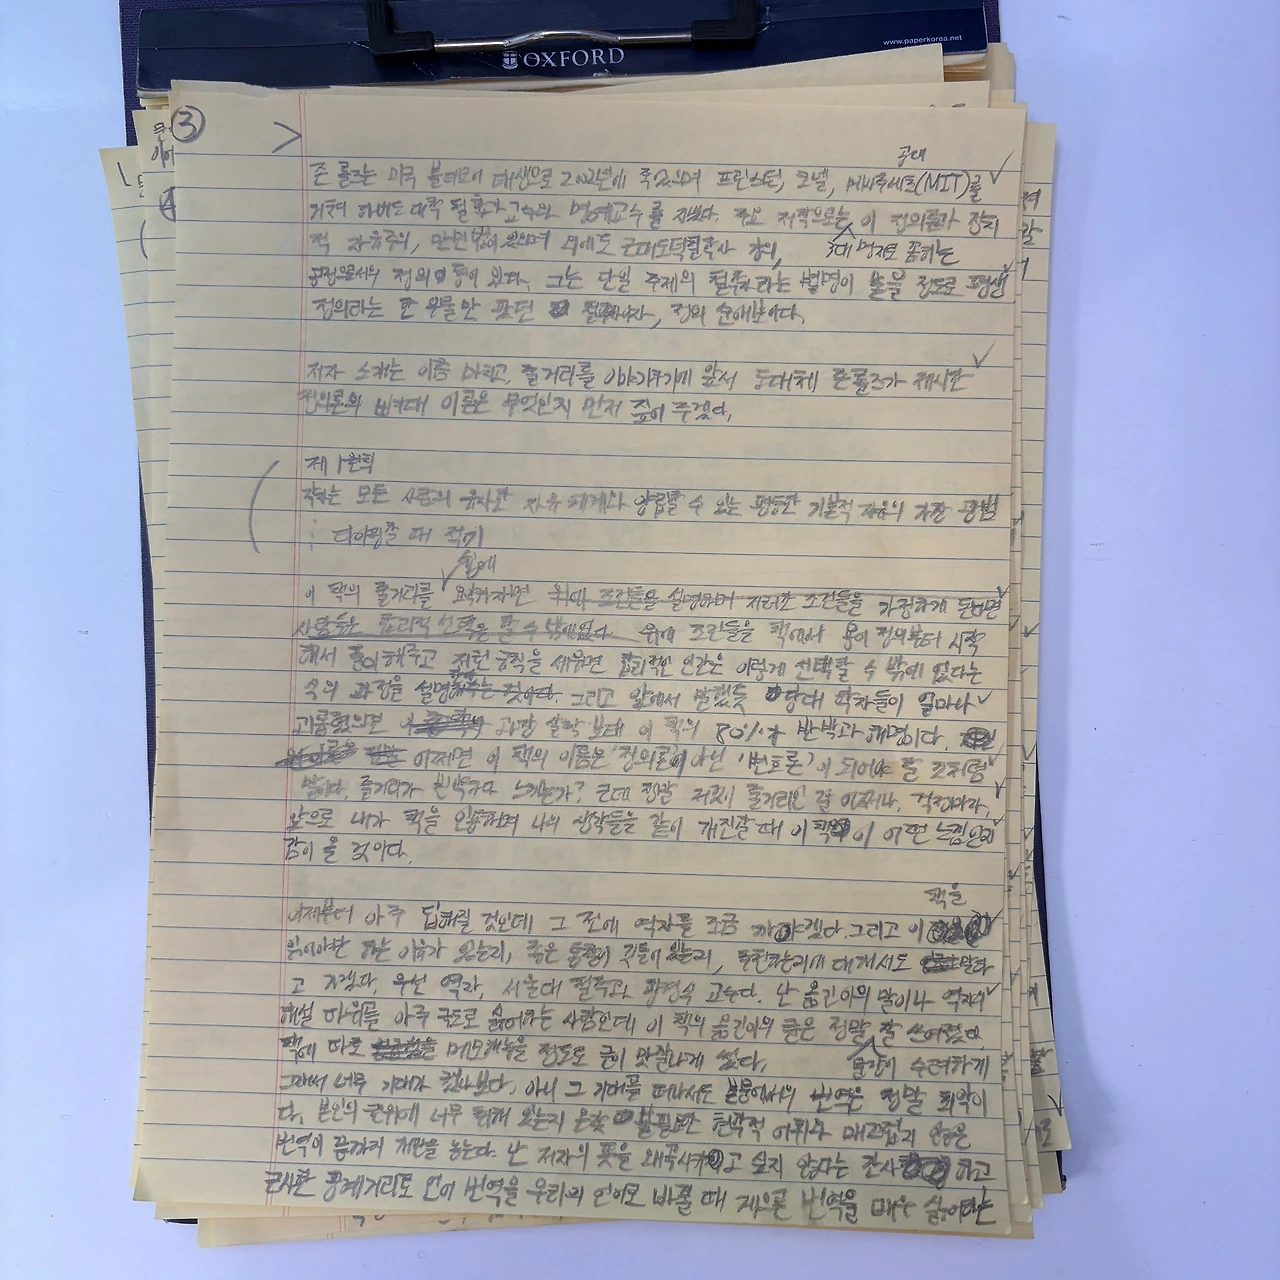 www.paperkorea.net
OXFORD
③
공대
존 롤즈는 미국 볼티모어 태생으로 2002년에 죽었으며 프린스턴, 코넬, 메사추세츠(MIT)를
거쳐 하버드 대학 철학과 교수와 명예교수를 지냈다. 주요 저작으로는 이 정의론과 정치
적 자유주의, 만민법이 있으며 외에도 근대도덕철학사 강의,
3대 명저로 통하는
공정으로서의 정의 등이 있다. 그는 단일 주제의 철학자라는 별명이 붙을 정도로 평생
정의라는 한 우물만 판 철학자이자, 정의 순애보이다.
저자 소개는 이쯤 마치고, 줄거리를 이야기하기에 앞서 도대체 존 롤즈가 제시한
정의론의 뼈대 이론은 무엇인지 먼저 짚어 주겠다.
제 1원칙
각자는 모든 사람의 유사한 자유 체계와 양립할 수 있는 평등한 기본적 자유의 가장 광범
: 타이핑할 때 적기
쉽게
이 책의 줄거리를 요약하자면 위에 조건들을 설명하며 저러한 조건들을 가정하게 된다면
사람들은 합리적 선택을 할 수 밖에 없다. 위에 조건들을 책에서 용어 정의부터 시작
해서 풀이해주고 저런 규칙을 세우면 합리적인 인간은 이렇게 선택할 수 밖에 없다는
식의 과정을 설명해주는 것이다. 그리고 앞에서 말했듯 당대 학자들이 얼마나
괴롭혔으면 과장 살짝 보태 이 책의 80%가 반박과 해명이다.
어쩌면 이 책의 이름은 '정의론'이 아닌 '변호론'이 되어야 할 것처럼
말이다. 줄거리가 빈약하다 느끼는가? 근데 정말 저것이 줄거리인 걸 어쩌나, 걱정마라,
앞으로 내가 책을 인용하며 나의 생각들을 같이 개진할 때 이 책이 어떤 느낌인지
감이 올 것이다.
책을
이제부터 아주 딥해질 것인데 그 전에 역자를 조금 까야겠다. 그리고 이
읽어야만 하는 이유가 있는지, 죽은 통찰이 깃들어 있는지, 추천하는지에 대해서도 말하
고 가겠다. 우선 역자, 서울대 철학과 황경식 교수다. 난 옮긴이의 말이나 역자의
해설 따위를 아주 극도로 싫어하는 사람인데 이 책의 옮긴이의 글은 정말 잘 쓰여졌다.
책에 따로 메모해놓을 정도로 글이 맛깔나게 썼다.
문장이 수려하게
그래서 너무 기대가 컸나보다. 아니 그 기대를 떠나서도 본문에서의 번역은 정말 최악이
다. 본인의 권위에 너무 취해 있는지 온갖 불필요한 현학적 어휘와 매끄럽지 않은
번역이 끝까지 개판을 놓는다. 난 저자의 뜻을 왜곡시키고 싶지 않다는 하고
근사한 핑계거리로 언어 번역을 우리의 언어로 바꿀 때 번역을 매우 싫어하는